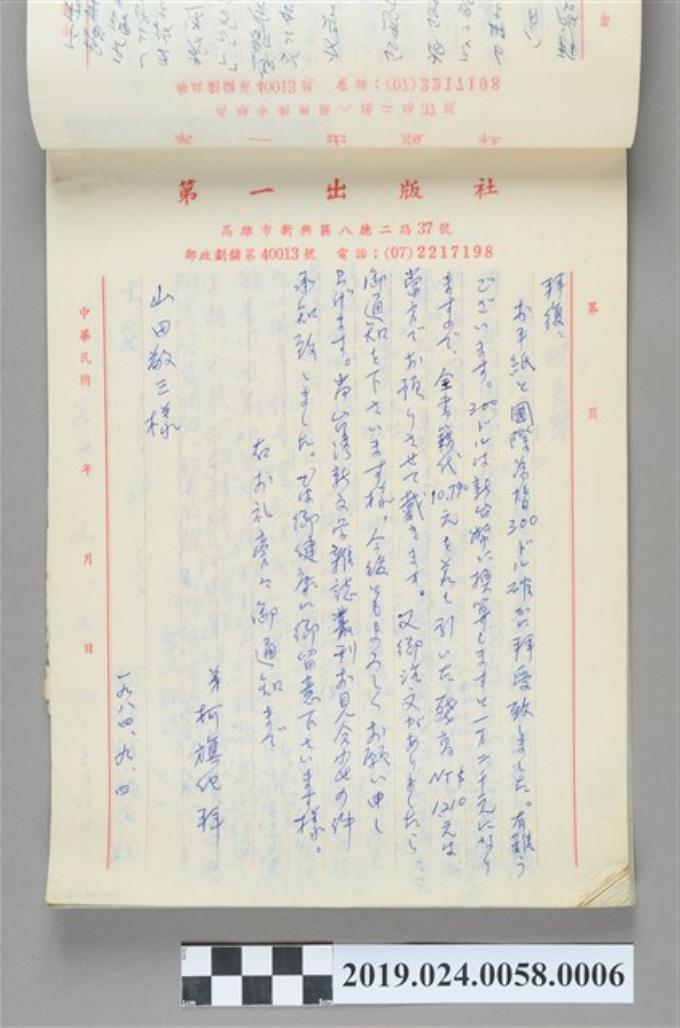 第一出版社
高雄市新興區八德二路37號
郵政劃儲第40013號 電話：(07)2217198
第 頁
拝復、
お手紙と國際為替300ドル確かに拝受致しました。有難う
ございます。300ドルは新台幣に換算しますと一万二千元になり
ますので、全書籍代10,790元を差し引いた残高NT$1210元は
当方でお預りさせて戴きます。又御注文がありましたら
御通知を下さいます様。今後ともよろしくお願い申し
上げます。尚台湾新文学雑誌叢刊お見合せの件
承知致しました。では御健康に御留意下さいます様。
右お礼旁々御通知まで
弟 柯旗化 拝
山田敬三様
一九八四、九、四
中華民國 年 月 日
2019.024.0058.0006